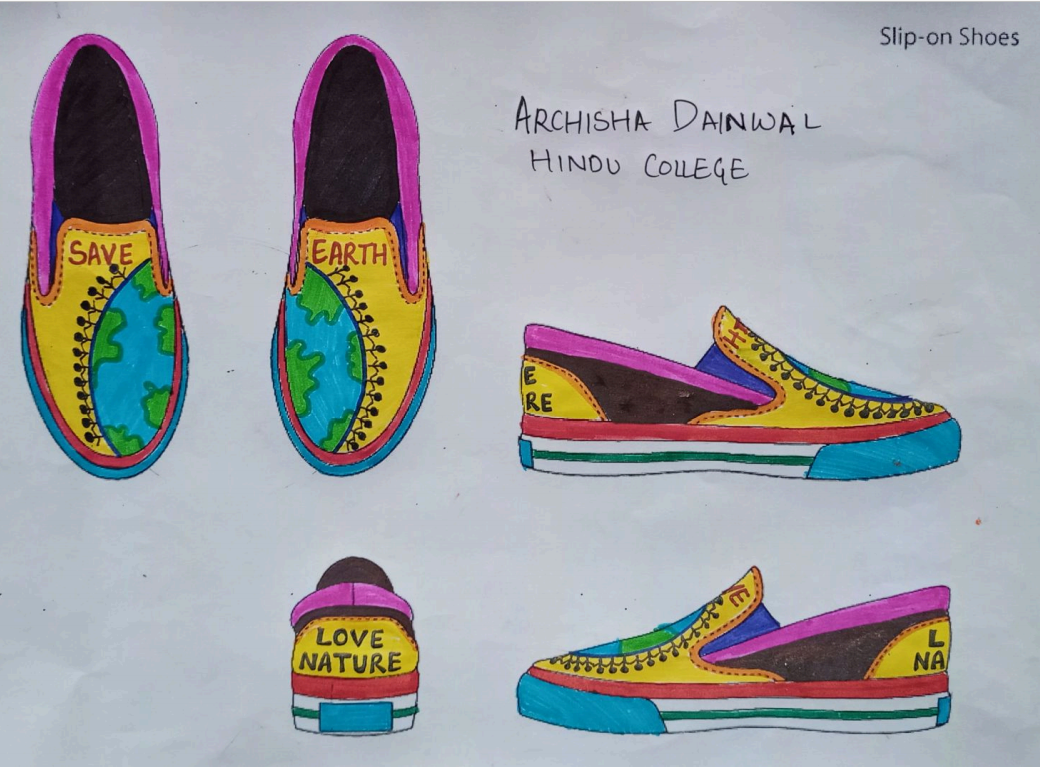 Slip-on Shoes
ARCHISHA DAINWAL
HINDU COLLEGE
SAVE
EARTH
TH
E
RE
LOVE
NATURE
VE
L
NA